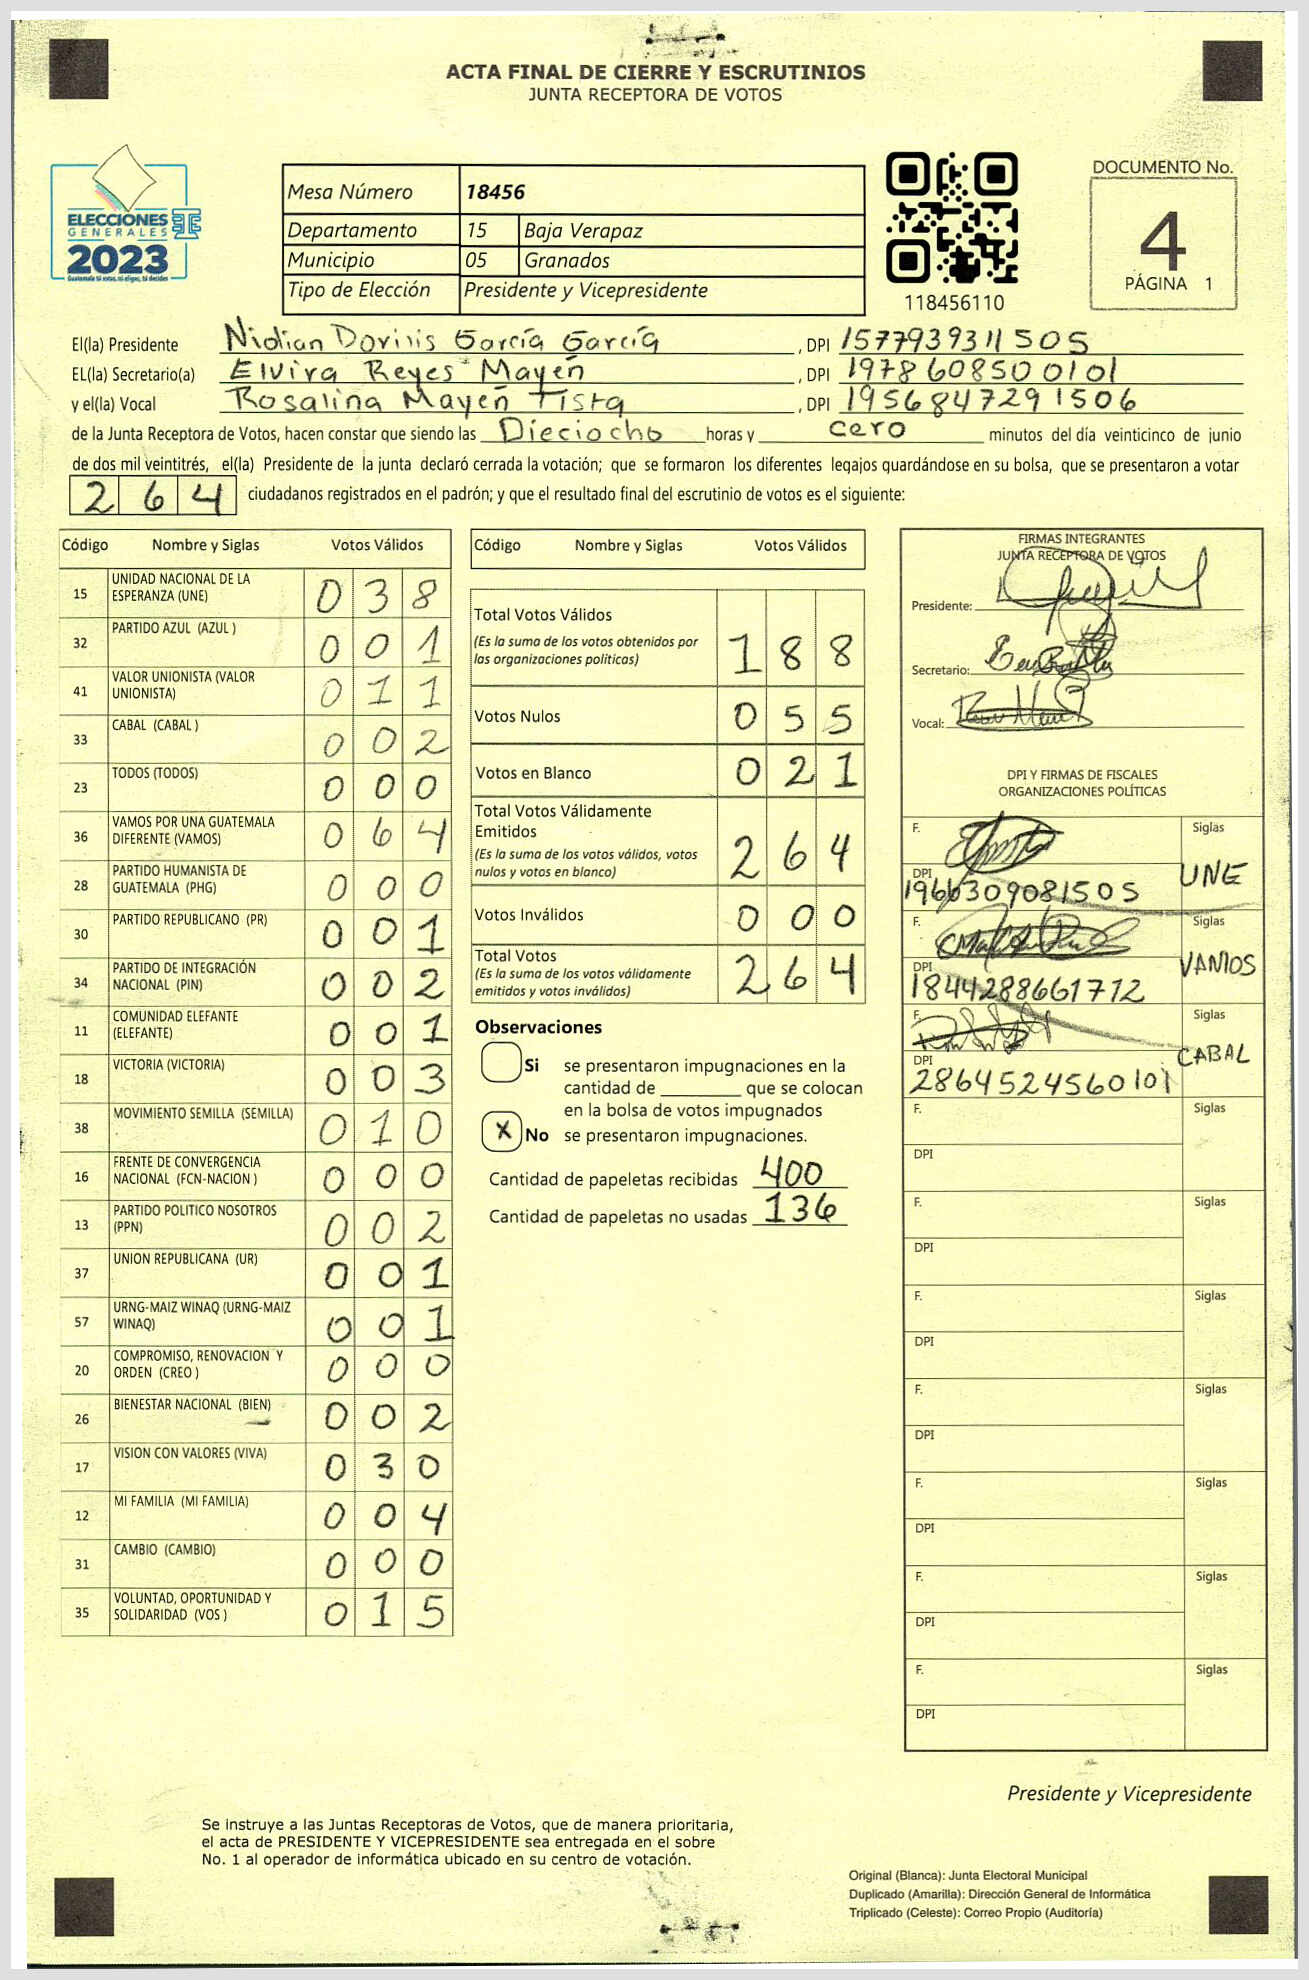 ACTA FINAL DE CIERRE Y ESCRUTINIOS
JUNTA RECEPTORA DE VOTOS
ELECCIONES
GENERALES
2023
Guatemala tú votas, tú eliges, tú decides
Mesa Número 18456
Departamento 15 Baja Verapaz
Municipio 05 Granados
Tipo de Elección Presidente y Vicepresidente
118456110
DOCUMENTO No.
4
PÁGINA 1
El(la) Presidente García García, DPI 1577939311505
EL(la) Secretario(a) Elvira Reyes Mayén, DPI 1978608500101
y el(la) Vocal Rosalina Mayén Tista, DPI 1956847291506
de la Junta Receptora de Votos, hacen constar que siendo las Dieciocho horas y cero minutos del día veinticinco de junio
de dos mil veintitrés, el(la) Presidente de la junta declaró cerrada la votación; que se formaron los diferentes legajos guardándose en su bolsa, que se presentaron a votar
264 ciudadanos registrados en el padrón; y que el resultado final del escrutinio de votos es el siguiente:
Código Nombre y Siglas Votos Válidos
15 UNIDAD NACIONAL DE LA ESPERANZA (UNE) 038
32 PARTIDO AZUL (AZUL ) 001
41 VALOR UNIONISTA (VALOR UNIONISTA) 011
33 CABAL (CABAL ) 002
23 TODOS (TODOS) 000
36 VAMOS POR UNA GUATEMALA DIFERENTE (VAMOS) 064
28 PARTIDO HUMANISTA DE GUATEMALA (PHG) 000
30 PARTIDO REPUBLICANO (PR) 001
34 PARTIDO DE INTEGRACIÓN NACIONAL (PIN) 002
11 COMUNIDAD ELEFANTE (ELEFANTE) 001
18 VICTORIA (VICTORIA) 003
38 MOVIMIENTO SEMILLA (SEMILLA) 010
16 FRENTE DE CONVERGENCIA NACIONAL (FCN-NACION ) 000
13 PARTIDO POLITICO NOSOTROS (PPN) 002
37 UNION REPUBLICANA (UR) 001
57 URNG-MAIZ WINAQ (URNG-MAIZ WINAQ) 001
20 COMPROMISO, RENOVACION Y ORDEN (CREO ) 000
26 BIENESTAR NACIONAL (BIEN) 002
17 VISION CON VALORES (VIVA) 030
12 MI FAMILIA (MI FAMILIA) 004
31 CAMBIO (CAMBIO) 000
35 VOLUNTAD, OPORTUNIDAD Y SOLIDARIDAD (VOS ) 015
Código Nombre y Siglas Votos Válidos
Total Votos Válidos 188
(Es la suma de los votos obtenidos por
las organizaciones políticas)
Votos Nulos 055
Votos en Blanco 021
Total Votos Válidamente
Emitidos 264
(Es la suma de los votos válidos, votos
nulos y votos en blanco)
Votos Inválidos 000
Total Votos 264
(Es la suma de los votos válidamente
emitidos y votos inválidos)
Observaciones
Si se presentaron impugnaciones en la
cantidad de ________ que se colocan
en la bolsa de votos impugnados
X No se presentaron impugnaciones.
Cantidad de papeletas recibidas 400
Cantidad de papeletas no usadas 136
FIRMAS INTEGRANTES
JUNTA RECEPTORA DE VOTOS
Presidente:
Secretario:
Vocal:
DPI Y FIRMAS DE FISCALES
ORGANIZACIONES POLÍTICAS
F. Siglas
DPI UNE
1966309081505
F. Siglas
DPI VAMOS
1844288661712
F. Siglas
DPI CABAL
2864524560101
F. Siglas
DPI
F. Siglas
DPI
F. Siglas
DPI
F. Siglas
DPI
F. Siglas
DPI
F. Siglas
DPI
F. Siglas
DPI
Presidente y Vicepresidente
Se instruye a las Juntas Receptoras de Votos, que de manera prioritaria,
el acta de PRESIDENTE Y VICEPRESIDENTE sea entregada en el sobre
No. 1 al operador de informática ubicado en su centro de votación.
Original (Blanca): Junta Electoral Municipal
Duplicado (Amarilla): Dirección General de Informática
Triplicado (Celeste): Correo Propio (Auditoría)